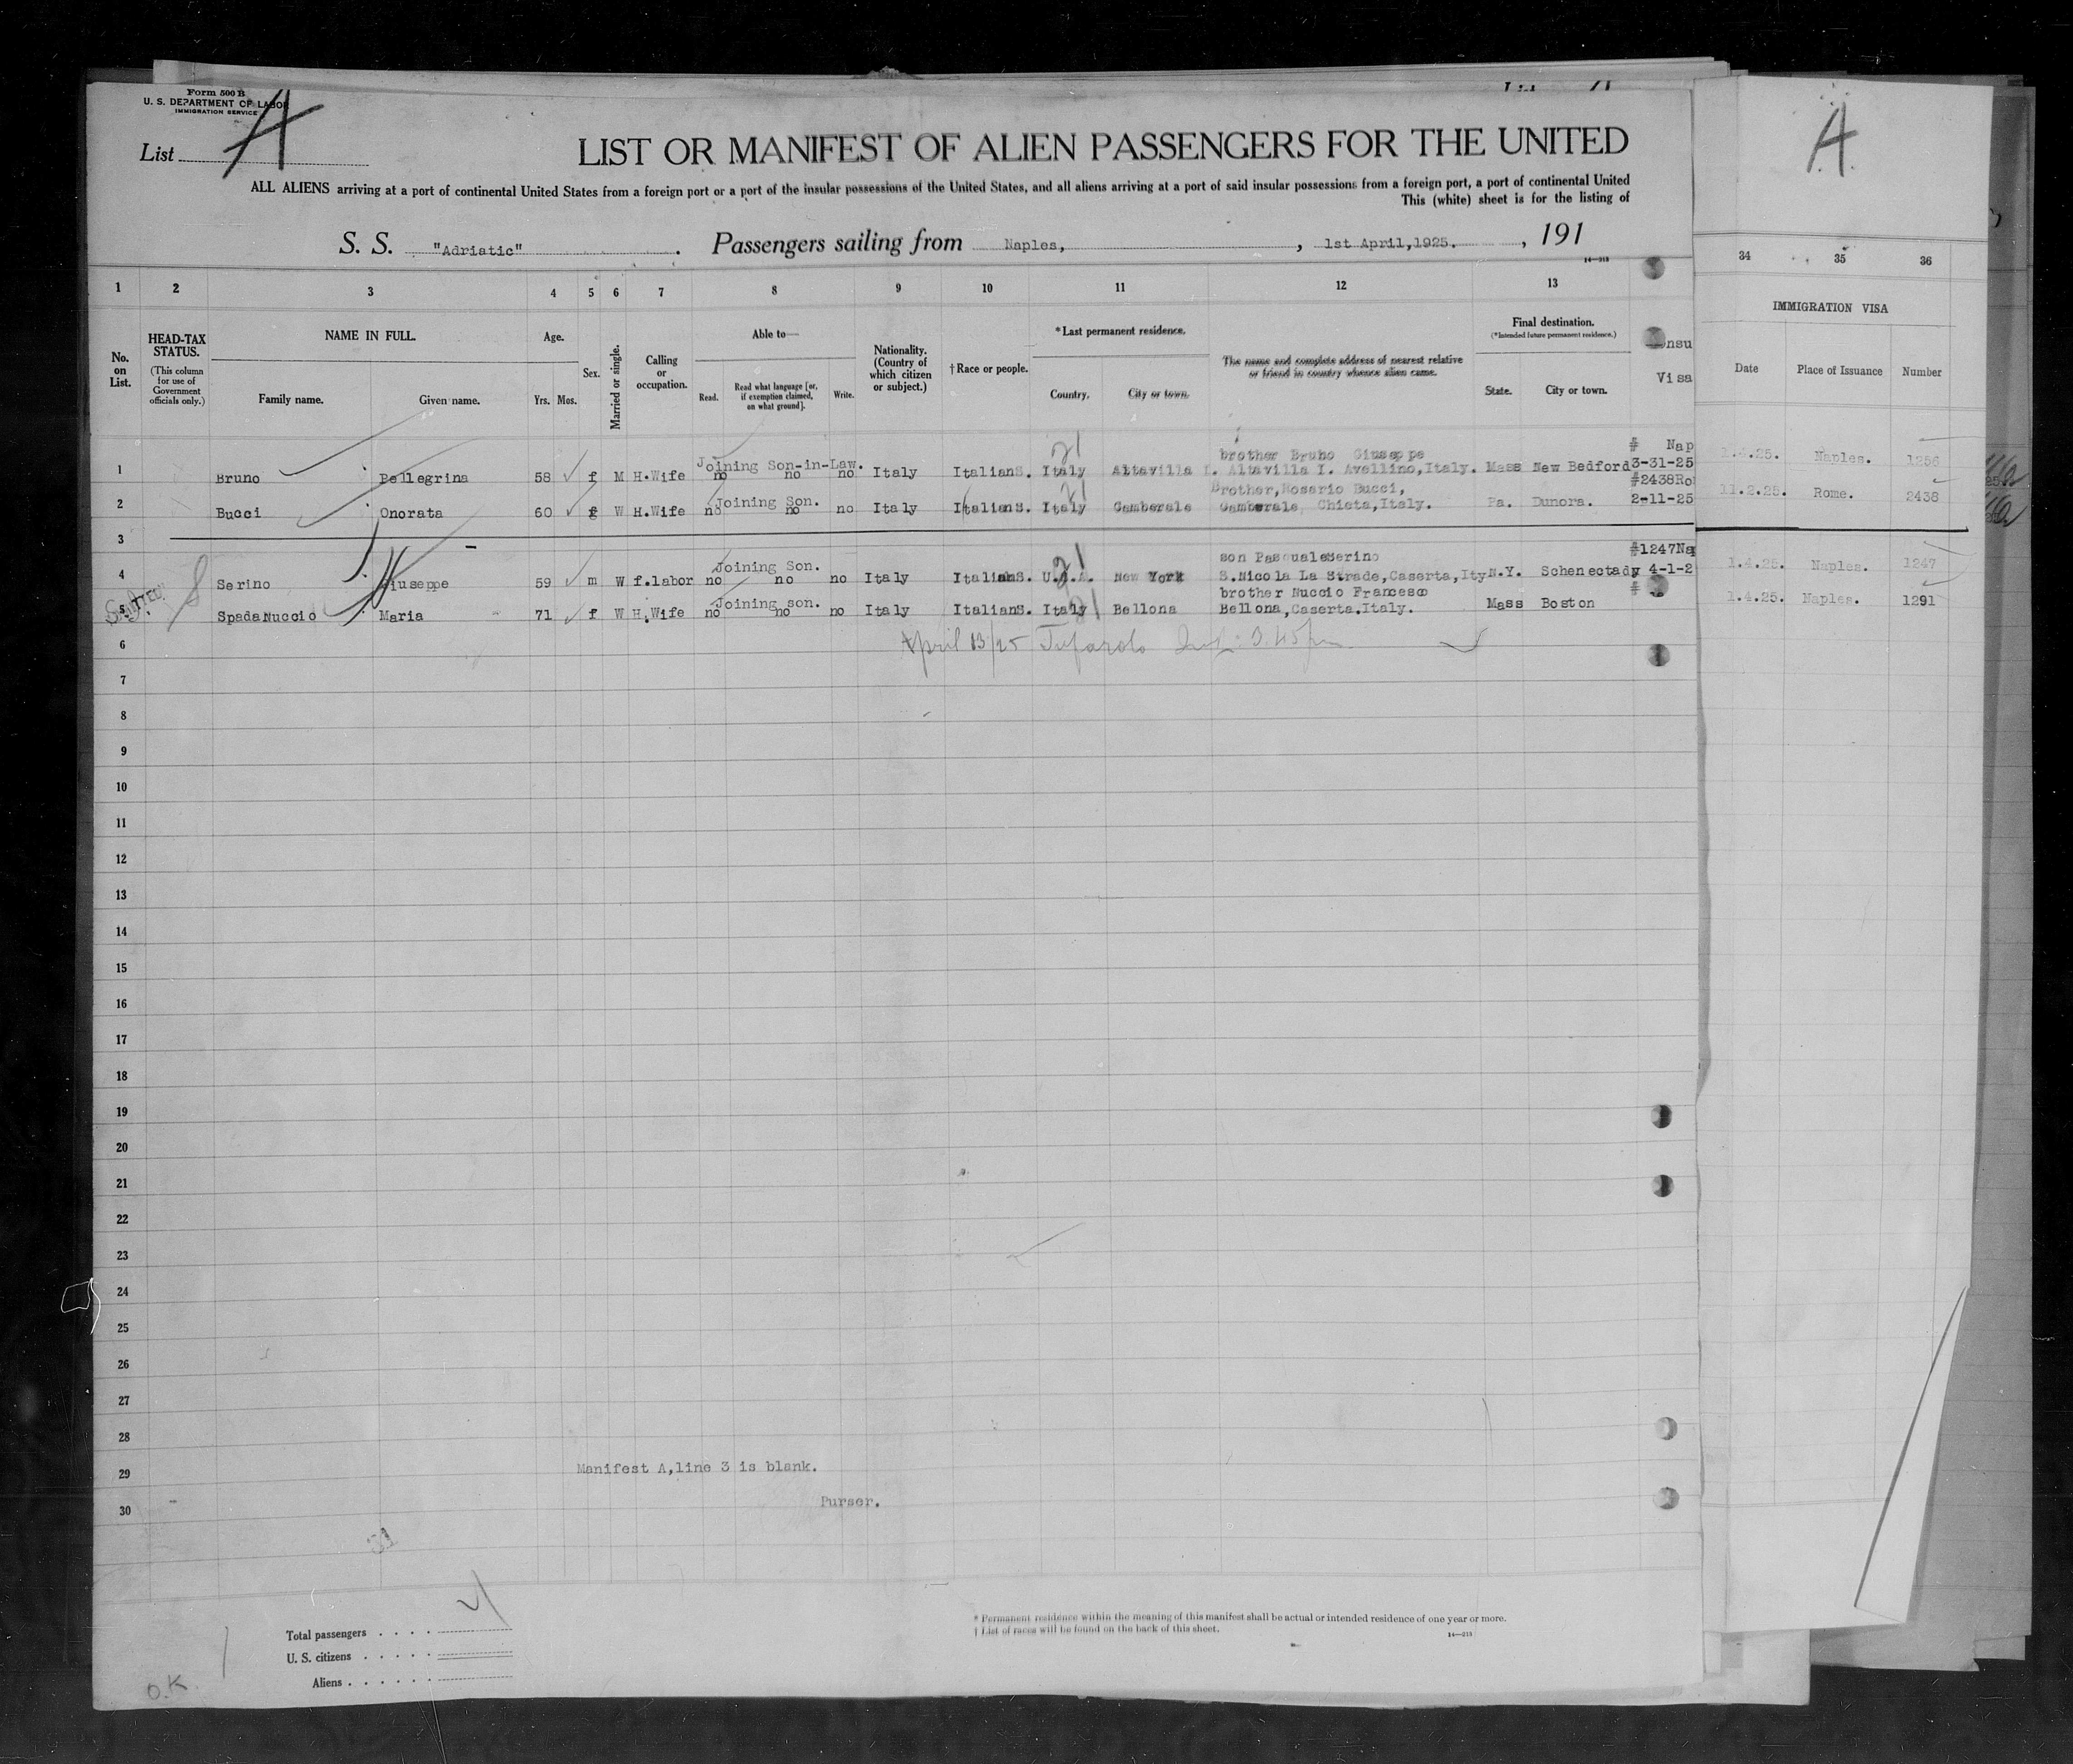 Form 500 B
U. S. DEPARTMENT OF LABOR
IMMIGRATION SERVICE
List A
LIST OR MANIFEST OF ALIEN PASSENGERS FOR THE UNITED
ALL ALIENS arriving at a port of continental United States from a foreign port or a port of the insular possessions of the United States, and all aliens arriving at a port of said insular possessions from a foreign port, a port of continental United
This (white) sheet is for the listing of
S. S. "Adriatic". Passengers sailing from Naples, , 1st April, 1925. , 191
14—313
A.
1 2 3 4 5 6 7 8 9 10 11 12 13 34 35 36
No. on List.
HEAD-TAX STATUS.
(This column for use of Government officials only.)
NAME IN FULL.
Family name. Given name.
Age.
Yrs. Mos.
Sex.
Married or single.
Calling or occupation.
Able to—
Read. Read what language [or, if exemption claimed, on what ground]. Write.
Nationality. (Country of which citizen or subject.)
†Race or people.
*Last permanent residence.
Country. City or town.
The name and complete address of nearest relative or friend in country whence alien came.
Final destination.
(*Intended future permanent residence.)
State. City or town.
nsu
Visa
IMMIGRATION VISA
Date Place of Issuance Number
Joining Son-in-Law. 21 brother Bruno Giuseppe # Nap
1 Bruno Pellegrina 58 f M H.Wife no no no Italy Italian S. Italy Altavilla I. Altavilla I. Avellino, Italy. Mass New Bedford 3-31-25 1.4.25. Naples. 1256
Joining Son. 21 Brother, Rosario Bucci, #2438Ro
2 Bucci Onorata 60 f W H.Wife no no no Italy Italian S. Italy Gamberale Gamberale Chieta, Italy. Pa. Dunora. 2-11-25 11.2.25. Rome. 2438
3 -
Joining Son. 21 son Pasquale Serino #1247Na
4 Serino Giuseppe 59 m W f.labor no no no Italy Italian S. U.S.A. New York S.Nicola La Strade, Caserta, Ity N.Y. Schenectady 4-1-2 1.4.25. Naples. 1247
Joining son. brother Nuccio Francesco #
5 Spada Nuccio Maria 71 f W H.Wife no no no Italy Italian S. Italy Bellona Bellona, Caserta. Italy. Mass Boston 1.4.25. Naples. 1291
6 April 13/25
7
8
9
10
11
12
13
14
15
16
17
18
19
20
21
22
23
24
25
26
27
28
29 Manifest A, line 3 is blank.
30 Purser.
Total passengers
U. S. citizens
Aliens
O.K.
* Permanent residence within the meaning of this manifest shall be actual or intended residence of one year or more.
† List of races will be found on the back of this sheet.
14—313